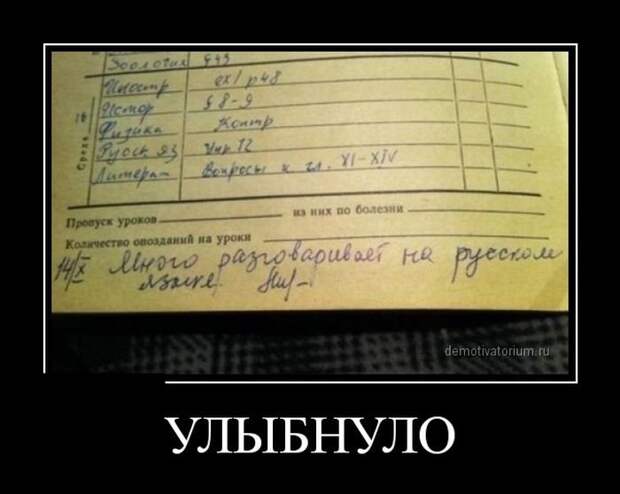 Зоология §43
Иностр ex1 p48
Истор § 8-9
Физика Контр
16
Среда
Русск. яз Упр 12
Литерат Вопросы к гл. XI-XIV
Пропуск уроков из них по болезни
Количество опозданий на уроки
14/X Много разговаривает на русском
языке.
demotivatorium.ru
УЛЫБНУЛО